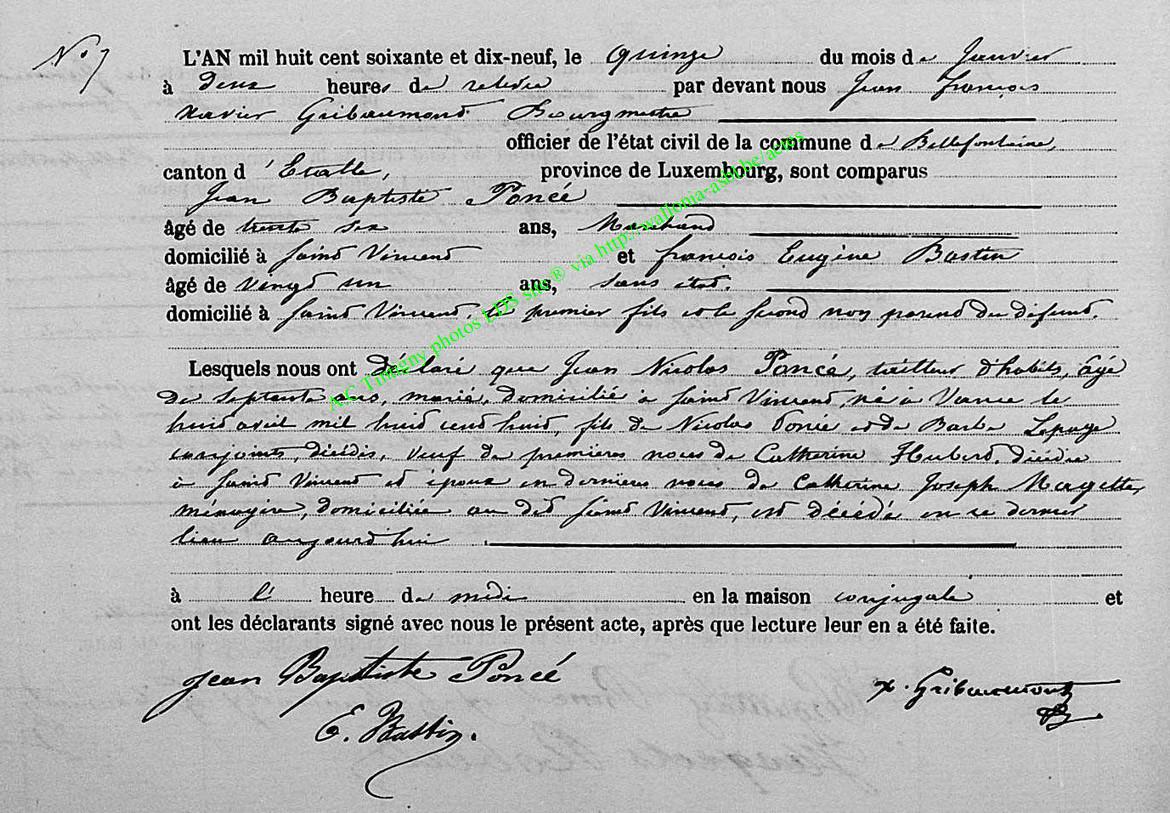 N° 7
L'AN mil huit cent soixante et dix-neuf, le quinze du mois de Janvier
à deux heures de relevée par devant nous Jean François
Xavier Gribaumont Bourgmestre
officier de l'état civil de la commune de Bellefontaine,
canton d'Etalle, province de Luxembourg, sont comparus
Jean Baptiste Poncé
âgé de trente six ans, Marchand
domicilié à Saint Vincent et françois Eugène Bastin
âgé de vingt un ans, sans état.
domicilié à Saint Vincent, le premier fils et le second non parent du défunt.
Lesquels nous ont déclaré que Jean Nicolas Poncé, tailleur d'habits, âgé
de septante ans, marié, domicilié à Saint Vincent, né à Vance le
huit avril mil huit cent huit, fils de Nicolas Poncé et de Barbe Lepage
conjoints, décédés, veuf de premières noces de Catherine Hubert, décédée
à Saint Vincent et époux en dernières noces de Catherine Joseph Magette,
ménagère, domiciliée au dit Saint Vincent, est décédé en ce dernier
lieu aujourd'hui
à l' heure de midi en la maison conjugale et
ont les déclarants signé avec nous le présent acte, après que lecture leur en a été faite.
Jean Baptiste Poncé
x. Gribaumont
E. Bastin.
A.C Tintigny photos LDS site® via http://wallonia-asbl.be/actes